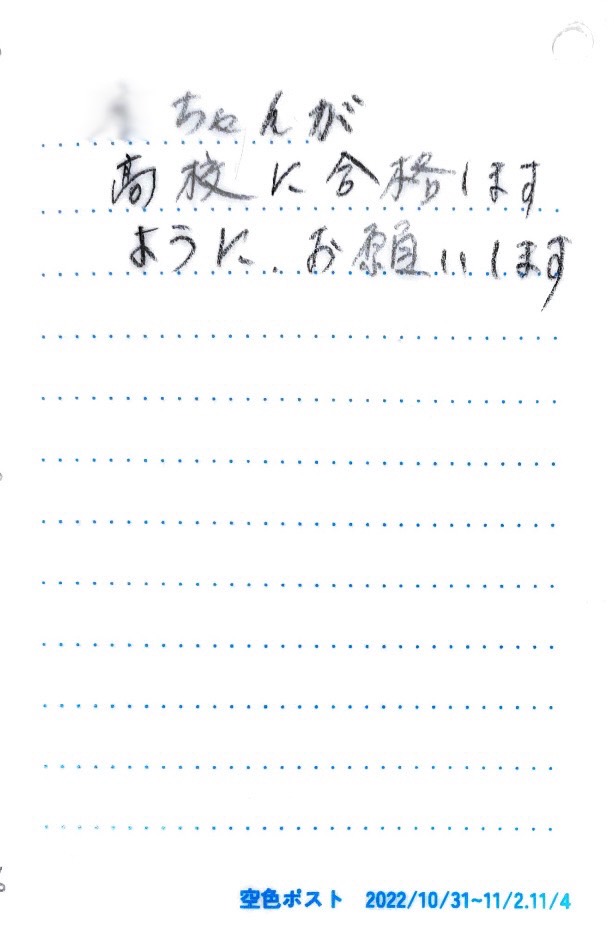 ちゃんが
高校に合格します
ように、お願いします
空色ポスト 2022/10/31~11/2.11/4